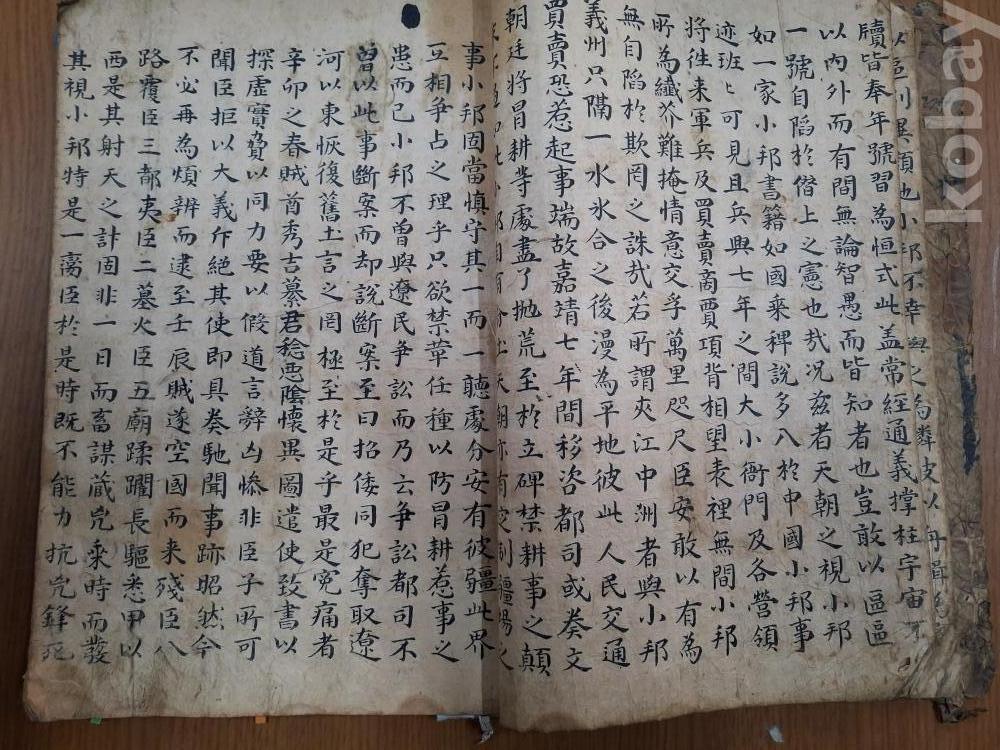 邑川異類也小邦不幸與之爲隣彼以舟
牘皆奉年號習為恒式此盖常經通義撑柱宇宙
以內外而有間無論智愚而皆知者也豈敢以區區
一號自陷於僣上之憲也㦲况玆者天朝之視小邦
如一家小邦書籍如國乘稗說多入於中國小邦事
迹班〻可見且兵興七年之間大小衙門及各營領
將徃来軍兵及買賣商賈項背相望表裡無間小邦
所為纖芥難掩情意交孚萬里咫尺臣安敢以有為
無自陷於欺罔之誅㦲若所謂夾江中洲者與小邦
義州只隔一水氷合之後漫為平地彼此人民交通
買賣恐惹起事端故嘉靖七年間移咨都司或奏文
朝廷將冒耕等處盡了抛荒至於立碑禁耕事之顛
天朝亦有定制疆場之
事小邦固當慎守其一而一聽處分安有彼疆此界
互相爭占之理乎只欲禁革任種以防冒耕惹事之
患而已小邦不曾與遼民爭訟而乃云爭訟都司不
曾以此事斷案而却說斷案至曰招倭同犯奪取遼
河以東恢復舊土言之罔極至於是乎最是寃痛者
辛卯之春賊酋秀吉簒君稔惡陰懷異圖遣使致書以
探虛實脅以同力要以假道言辭凶慘非臣子所可
聞臣拒以大義斥絕其使即具奏馳聞事跡昭然今
不必再為煩辨而逮至壬辰賊遂空國而来殘臣八
路覆臣三都夷臣二墓火臣五廟蹂躙長驅悉甲以
西是其射天之計固非一日而畜謀蕆兇乘時而發
其視小邦特是一离臣於是時既不能力抗兇鋒死
kobay